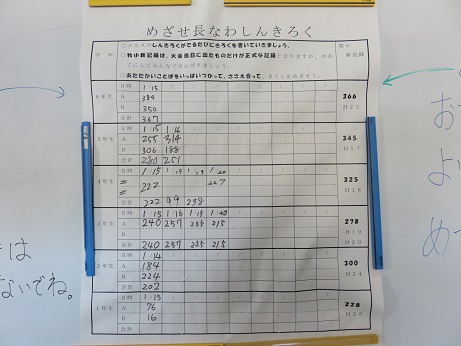 めざせ長なわしんきろく
学年
○クラスのしんきろくがでるたびにきろくを書いていきましょう。
○牧小新記録は、大会当日に出たものだけが正式な記録となりますが、めあてにしてみんなでがんばりましょう。
○あたたかいことばをいっぱいつかって、ささえ合って
牧小
新記録
6年生
日時 1/15
A 384
B 350
合計 367
366
H23
5年生
日時 1/15 1/16
A 255 314
B 306 188
合計 280 251
345
H17
4年生
1/15 1/18 1/19 1/20
222 227
合計 222 99 238
325
H18
3年生
日時 1/15 1/16 1/19 1/20
A 240 257 235 215
B
合計 240 257 235 215
278
H19
H20
2年生
日時 1/14
A 184
B 224
合計 202
300
H24
1年生
日時 1/15
A 76
B 16
合計
228
は
ないでね。
お
よい
めざ